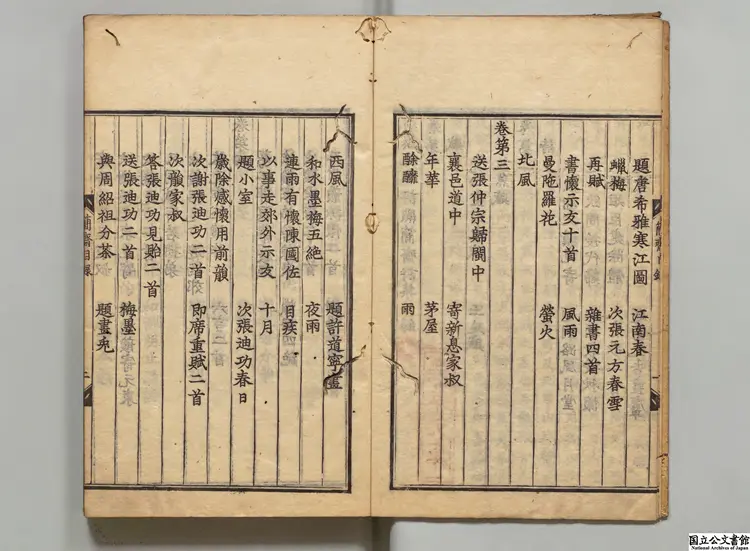 題唐希雅寒江圖 江南春
蠟梅 次張元方春雪
再賦 雜書四首
書懷示友十首 風雨
曼陁羅花 螢火
北風
卷第三
送張仲宗歸閩中
襄邑道中 寄新息家叔
年華 茅屋
酴醿 雨
西風 題許道寧畫
和水墨梅五絶 夜雨
連雨有懷陳國佐 目疾
以事走郊外示友 十月
題小室 次張迪功春日
歲除感懷用前韻
次謝張迪功二首 即席重賦二首
次韻家叔
荅張迪功見貽二首
送張迪功二首 梅墨
與周紹祖分茶 題畫兎
簡齋目録
二
国立公文書館
National Archives of Japan